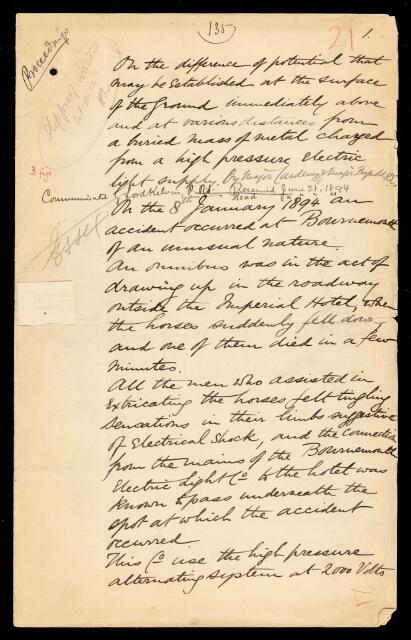 135
21
1.
Proceedings
On the difference of potential that
may be Established at the surface
of the Ground immediately above
and at various distances from
a buried mass of metal charged
from a high pressure Electric
light supply. By Major Cardew & Major
3 figs
Communicated Lord Kelvin, P.R.S. Received June 21. 1894
Read
On the 8th January 1894 an
accident occurred at Bournemouth
of an unusual nature.
An omnibus was in the act of
drawing up in the roadway
outside the Imperial Hotel, when
the horses suddenly fell down
and one of them died in a few
minutes.
All the men who assisted in
Extricating the horses felt tingling
sensations in their limbs suggestive
of Electrical Shock, and the Connection
from the mains of the Bournemouth
Electric Light Co to the hotel was
known to pass underneath the
spot at which the accident
occurred.
This Co use the high pressure
alternating system at 2000 Volts